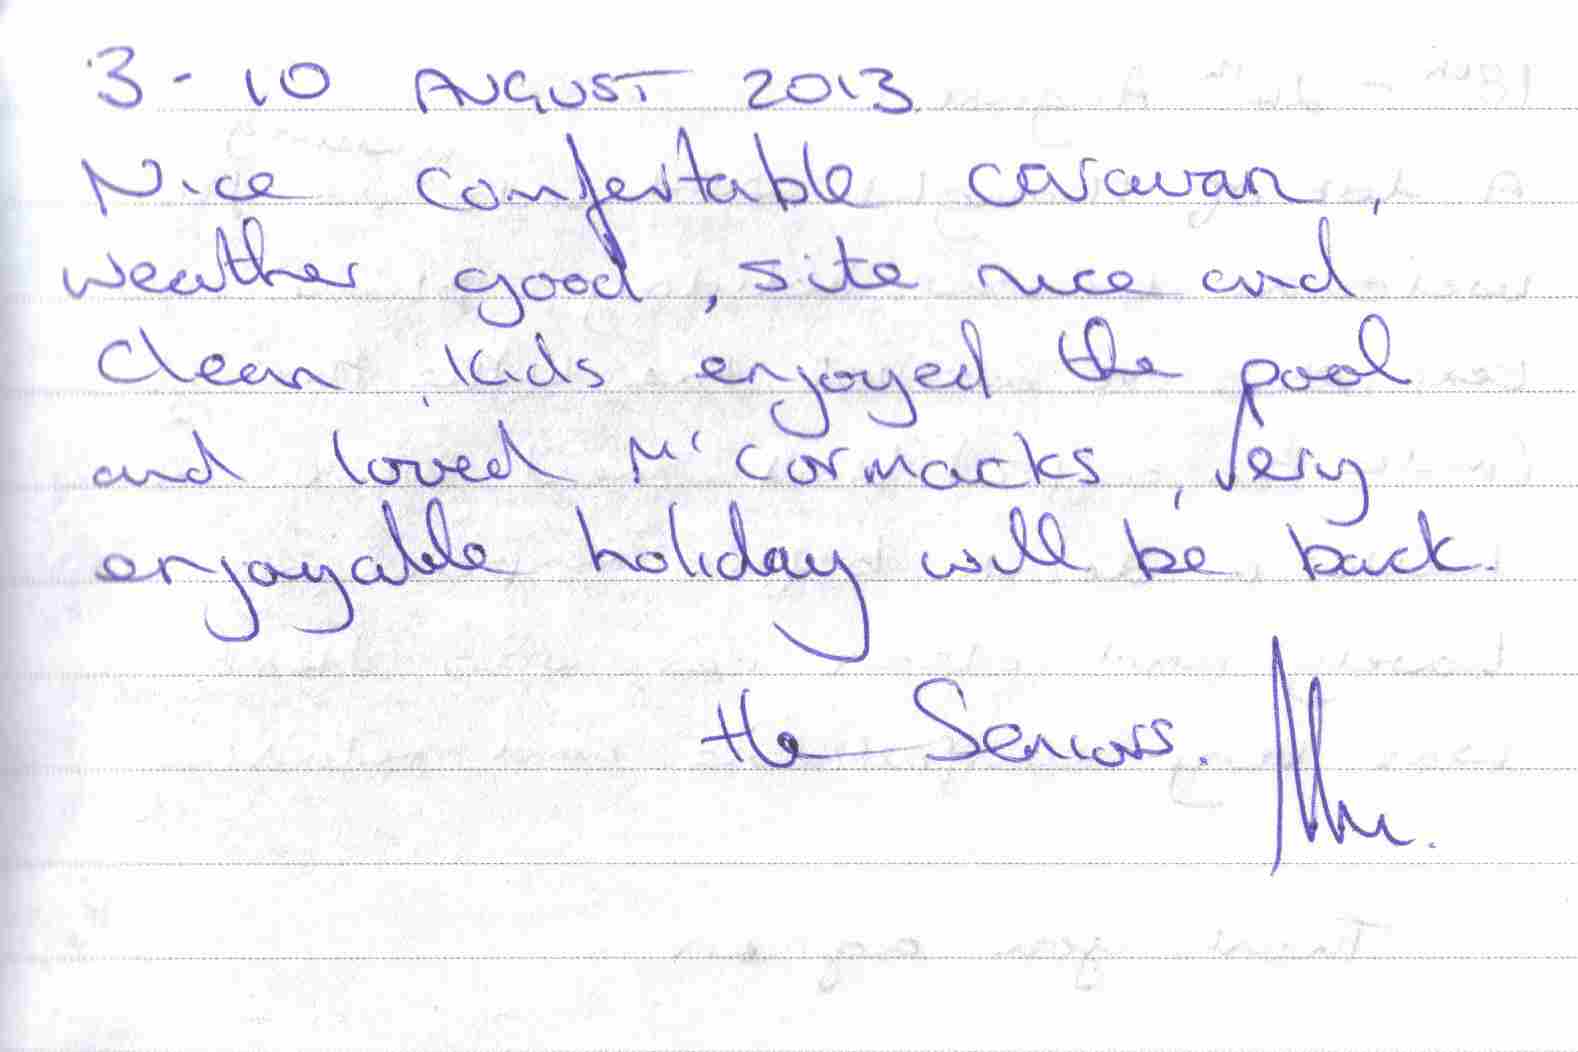 3 - 10 AUGUST 2013
Nice comfertable caravan,
weather good, site nice and
clean, kids enjoyed the pool
and loved Mc Cormacks, Very
enjoyable holiday will be back.
the Seniors.